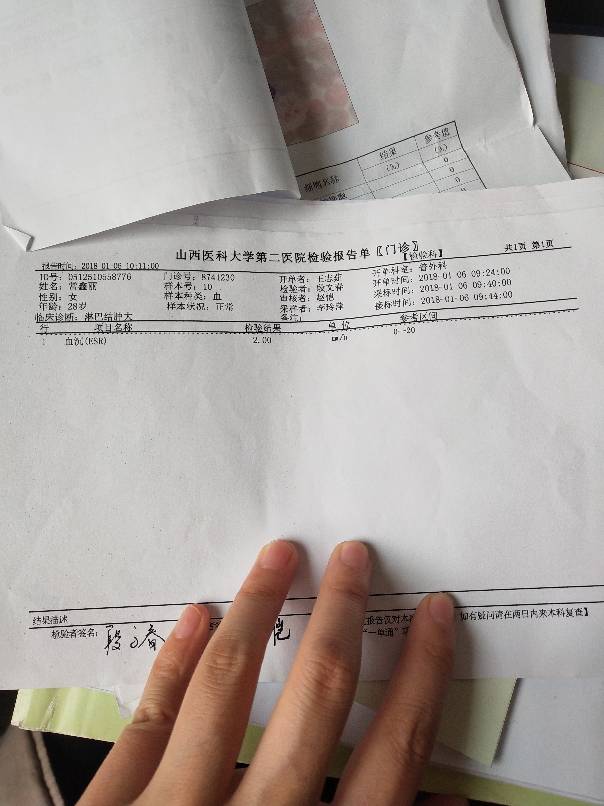 结果
参考值
(%)
(%)
0
0
0
山西医科大学第二医院检验报告单〖门诊〗
【检验科】
共1页 第1页
报告时间: 2018-01-06 10:11:00
ID号: 0512510558776 门诊号: 8741230 开单者: 王志茹 开单科室: 普外科
姓名: 常鑫丽 样本号: 10 检验者: 段文春 开单时间: 2018-01-06 09:24:00
性别: 女 样本种类: 血 审核者: 赵恺 采标时间: 2018-01-06 09:40:00
年龄: 28岁 样本状况: 正常 采样者: 李玲萍 接标时间: 2018-01-06 09:44:00
临床诊断: 淋巴结肿大 备注:
行 项目名称 检验结果 单 位 参考区间
1 血沉(ESR) 2.00 mm/h 0--20
结果描述
检验者签名: 段文春 恺 报告仅对本 如有疑问请在两日内来本科复查】
“一单通”